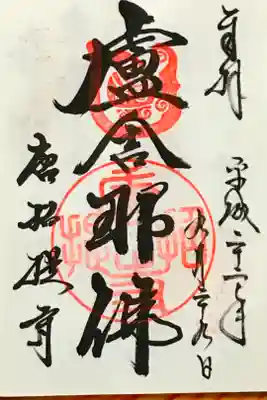 奉拝
平成二十一年
九月二十九日
盧舎那佛
唐招提寺